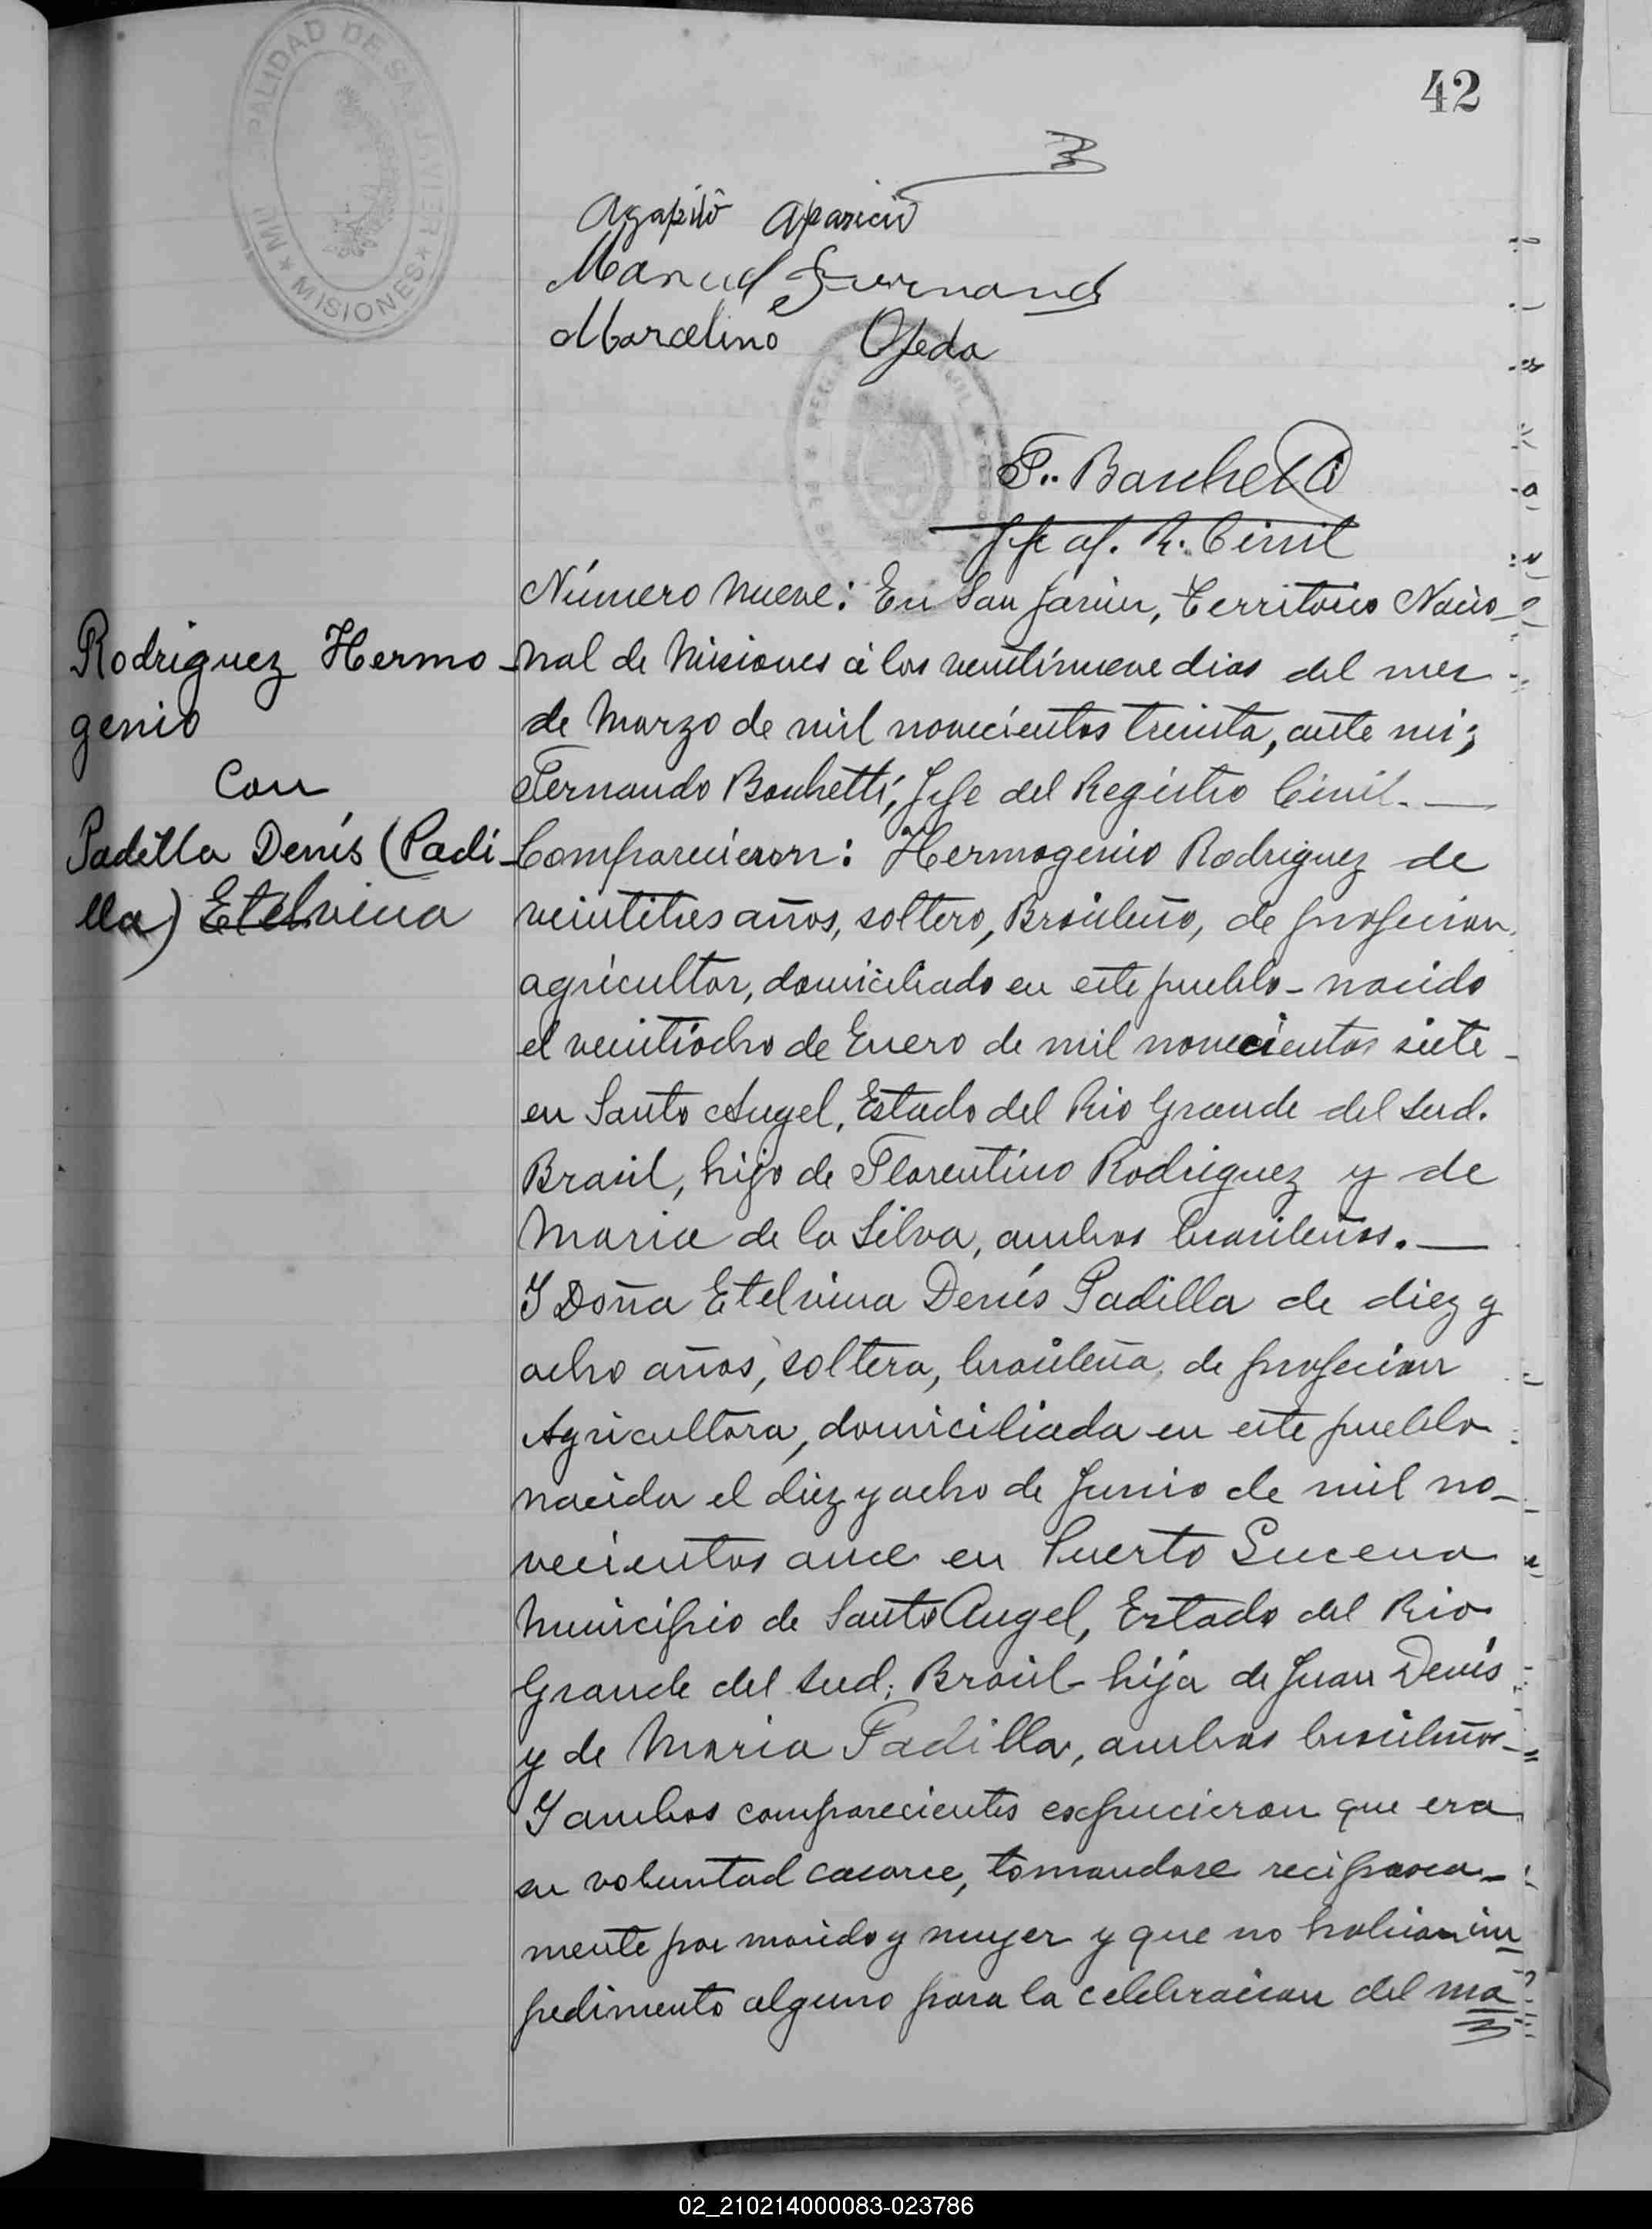 42
MUNICIPALIDAD DE SAN JAVIER
* MISIONES *
Agapito Aparicio
Manuel Fernandez
Marcelino Ojeda
F. Bonchetti
Jefe of. R. Civil
Número Nueve: En San Javier, Territorio Nacio-
Rodriguez Hermo-
nal de Misiones á los veintinueve dias del mes
genio
de Marzo de mil novecientos treinta, ante mi;
Con
Fernando Bonchetti, Jefe del Registro Civil.—
Padilla Denís (Padi-
Comparecieron: Hermogenio Rodriguez de
lla) Etelvina
veintitres años, soltero, Brasileño, de profecion
agricultor, domiciliado en este pueblo - nacido
el veintiocho de Enero de mil novecientos siete -
en Santo Angel, Estado del Rio Grande del Sud.
Brasil, hijo de Florentino Rodriguez y de
Maria de la Silva, ambos brasileños.—
Y Doña Etelvina Denís Padilla de diez y
ocho años, soltera, brasileña, de profecion
Agricultora, domiciliada en este pueblo
nacida el diez y ocho de Junio de mil no-
vecientos once en Puerto Lucena
Municipio de Santo Angel, Estado del Rio
Grande del Sud; Brasil - hija de Juan Denís
y de Maria Padilla, ambos brasileños -
Y ambos comparecientes expucieron que era
su voluntad casarce, tomandose reciproca-
mente por marido y mujer y que no habian im-
pedimento alguno para la celebracion del ma
02_210214000083-023786